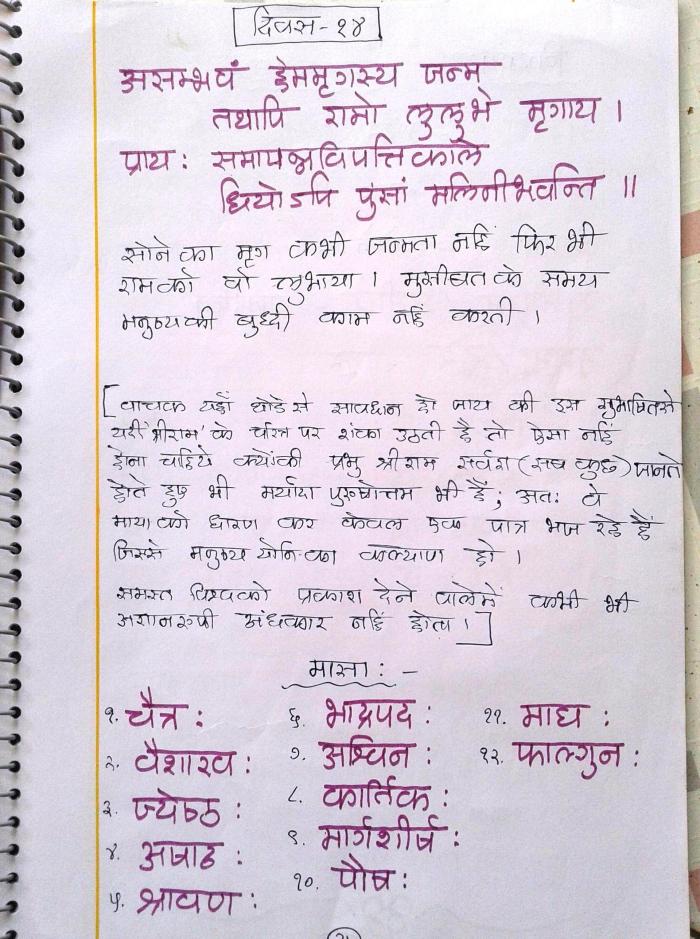 दिवस-१४
असम्भवं हेममृगस्य जन्म
तथापि रामो लुलुभे मृगाय ।
प्राय: समापन्नविपत्तिकाले
धियोऽपि पुंसां मलिनीभवन्ति ॥
सोने का मृग कभी जन्मता नहिं फिर भी
राम को वो लुभाया । मुसीबत के समय
मनुष्य की बुध्दी काम नहिं करती ।
[वाचक यहाँ थोडे से सावधान हो जाय की इस सुभाषित से
यदी 'श्रीराम' के चरित्र पर शंका उठती है तो ऐसा नहिं
होना चहिये क्योंकी प्रभु श्रीराम सर्वज्ञ (सब कुछ) जानते
होते हुए भी मर्यादा पुरुषोत्तम भी हैं; अत: वे
माया को धारण कर केवल एक पात्र भज रहे हैं
जिससे मनुष्य योनि का कल्याण हो ।
समस्त विश्व को प्रकाश देने वाले में कभी भी
अज्ञानरुपी अंधकार नहिं होता ।]
मासा: -
१. चैत्र :
२. वैशाख :
३. ज्येष्ठ :
४. अषाढ :
५. श्रावण :
६. भाद्रपद :
७. अश्विन :
८. कार्तिक :
९. मार्गशीर्ष :
१०. पौष :
११. माघ :
१२. फाल्गुन :